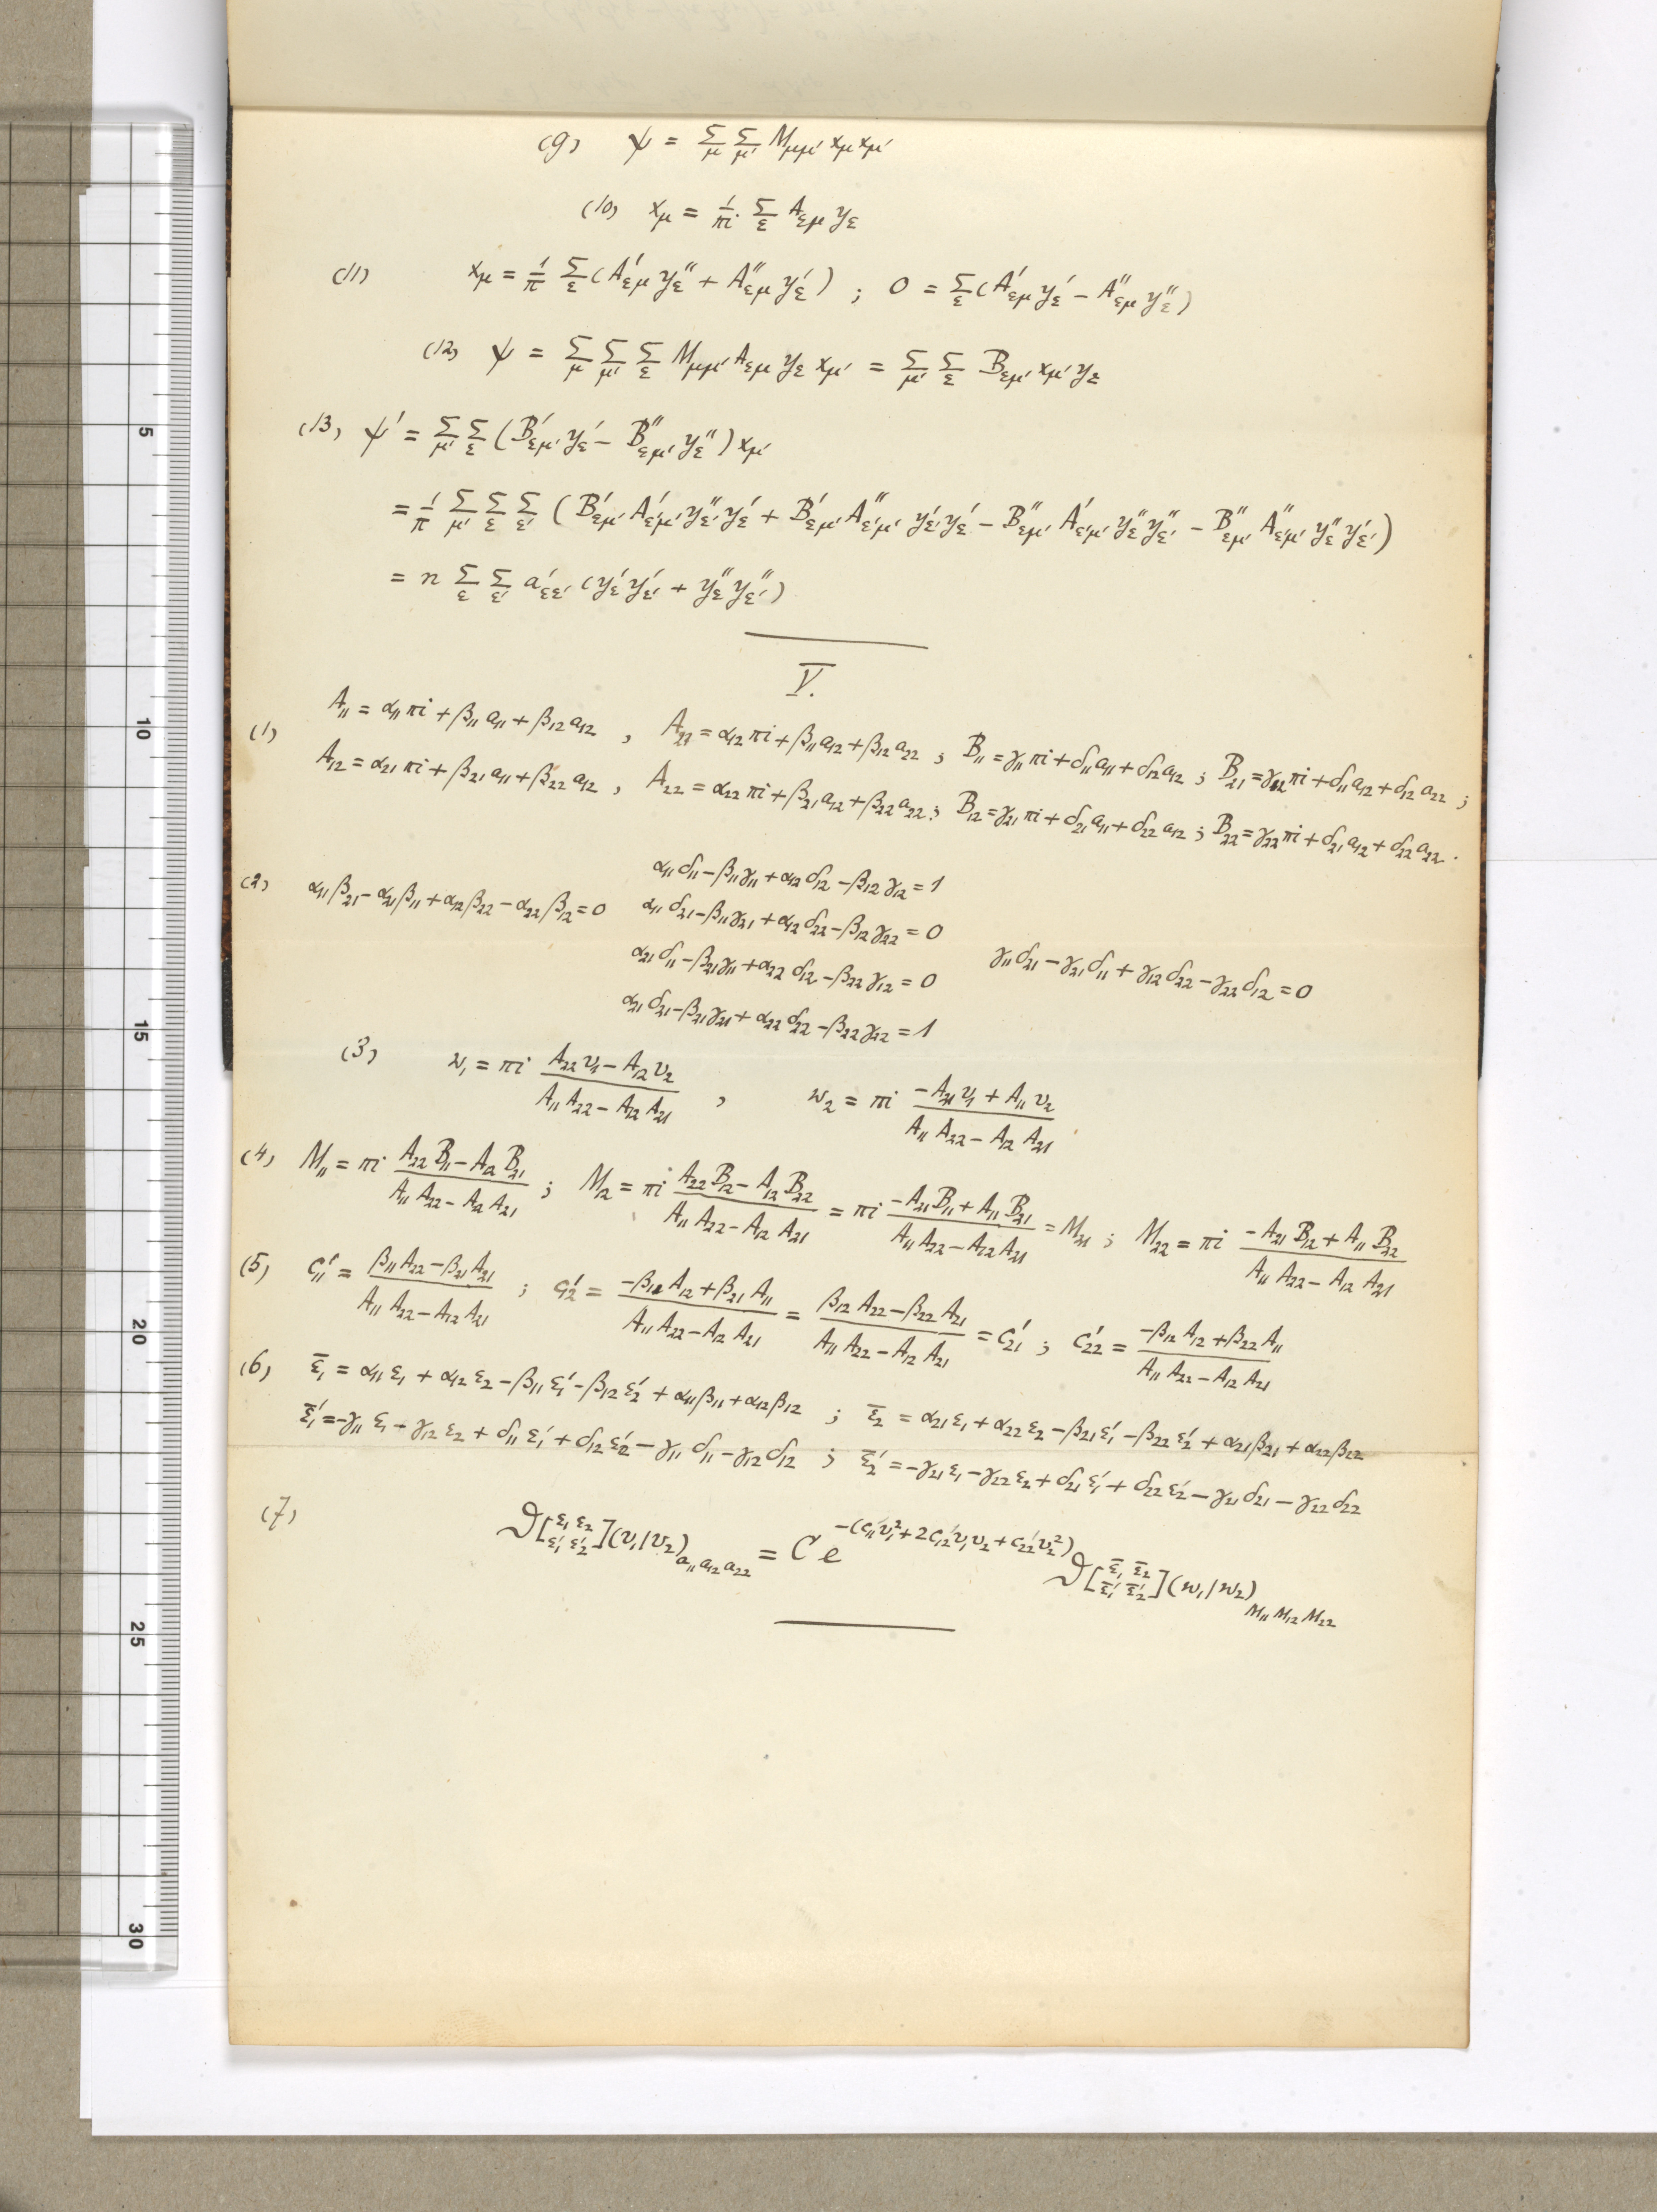 (9) ψ = Σ_μ Σ_μ' M_μμ' x_μ x_μ'
(10) x_μ = 1/πi Σ_ε A_εμ y_ε
(11) x_μ = 1/π Σ_ε (A'_εμ y''_ε + A''_εμ y'_ε) ; 0 = Σ_ε (A'_εμ y'_ε − A''_εμ y''_ε)
(12) ψ = Σ_μ Σ_μ' Σ_ε M_μμ' A_εμ y_ε x_μ' = Σ_μ' Σ_ε B_εμ' x_μ' y_ε
(13) ψ' = Σ_μ' Σ_ε (B'_εμ' y'_ε − B''_εμ' y''_ε) x_μ'
= 1/π Σ_μ' Σ_ε Σ_ε' (B'_εμ' A'_ε'μ' y''_ε' y'_ε + B'_εμ' A''_ε'μ' y'_ε' y'_ε − B''_εμ' A'_ε'μ' y''_ε y''_ε' − B''_εμ' A''_ε'μ' y''_ε y'_ε')
= n Σ_ε Σ_ε' a'_εε' (y'_ε y'_ε' + y''_ε y''_ε')
V.
(1) A_11 = α_11 πi + β_11 a_11 + β_12 a_12 , A_21 = α_12 πi + β_11 a_12 + β_12 a_22 ; B_11 = γ_11 πi + δ_11 a_11 + δ_12 a_12 ; B_21 = γ_12 πi + δ_11 a_12 + δ_12 a_22 ;
A_12 = α_21 πi + β_21 a_11 + β_22 a_12 , A_22 = α_22 πi + β_21 a_12 + β_22 a_22 ; B_12 = γ_21 πi + δ_21 a_11 + δ_22 a_12 ; B_22 = γ_22 πi + δ_21 a_12 + δ_22 a_22 .
α_11 δ_11 − β_11 γ_11 + α_12 δ_12 − β_12 γ_12 = 1
(2) α_11 β_21 − α_21 β_11 + α_12 β_22 − α_22 β_12 = 0 α_11 δ_21 − β_11 γ_21 + α_12 δ_22 − β_12 γ_22 = 0
α_21 δ_11 − β_21 γ_11 + α_22 δ_12 − β_22 γ_12 = 0 γ_11 δ_21 − γ_21 δ_11 + γ_12 δ_22 − γ_22 δ_12 = 0
α_21 δ_21 − β_21 γ_21 + α_22 δ_22 − β_22 γ_22 = 1
(3) w_1 = πi (A_22 v_1 − A_12 v_2)/(A_11 A_22 − A_12 A_21) , w_2 = πi (−A_21 v_1 + A_11 v_2)/(A_11 A_22 − A_12 A_21)
(4) M_11 = πi (A_22 B_11 − A_12 B_21)/(A_11 A_22 − A_12 A_21) ; M_12 = πi (A_22 B_12 − A_12 B_22)/(A_11 A_22 − A_12 A_21) = πi (−A_21 B_11 + A_11 B_21)/(A_11 A_22 − A_12 A_21) = M_21 ; M_22 = πi (−A_21 B_12 + A_11 B_22)/(A_11 A_22 − A_12 A_21)
(5) c'_11 = (β_11 A_22 − β_21 A_21)/(A_11 A_22 − A_12 A_21) ; c'_12 = (−β_11 A_12 + β_21 A_11)/(A_11 A_22 − A_12 A_21) = (β_12 A_22 − β_22 A_21)/(A_11 A_22 − A_12 A_21) = c'_21 ; c'_22 = (−β_12 A_12 + β_22 A_11)/(A_11 A_22 − A_12 A_21)
(6) ε̄_1 = α_11 ε_1 + α_12 ε_2 − β_11 ε'_1 − β_12 ε'_2 + α_11 β_11 + α_12 β_12 ; ε̄_2 = α_21 ε_1 + α_22 ε_2 − β_21 ε'_1 − β_22 ε'_2 + α_21 β_21 + α_22 β_22
ε̄'_1 = −γ_11 ε_1 − γ_12 ε_2 + δ_11 ε'_1 + δ_12 ε'_2 − γ_11 δ_11 − γ_12 δ_12 ; ε̄'_2 = −γ_21 ε_1 − γ_22 ε_2 + δ_21 ε'_1 + δ_22 ε'_2 − γ_21 δ_21 − γ_22 δ_22
(7) ϑ[ε_1 ε_2 / ε'_1 ε'_2](v_1|v_2)_{a_11 a_12 a_22} = C e^{−(c'_11 v_1² + 2c'_12 v_1 v_2 + c'_22 v_2²)} ϑ[ε̄_1 ε̄_2 / ε̄'_1 ε̄'_2](w_1|w_2)_{M_11 M_12 M_22}
5
10
15
20
25
30